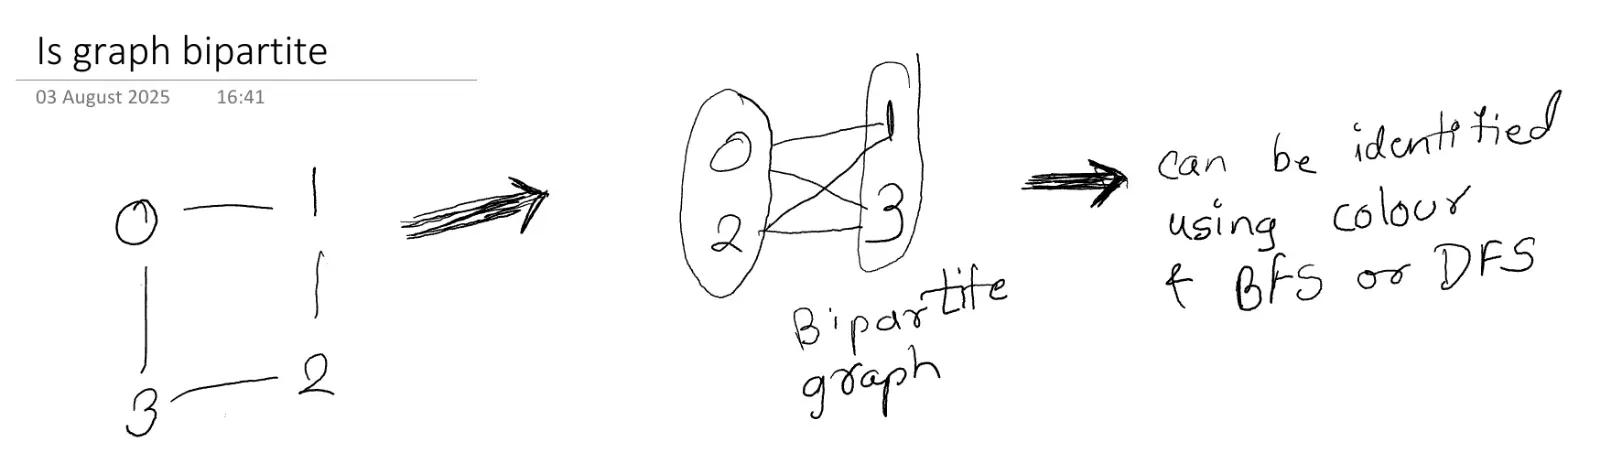 Is graph bipartite
03 August 2025 16:41
0 1
3 2
0 1
2 3
Bipartite
graph
can be identified
using colour
& BFS or DFS